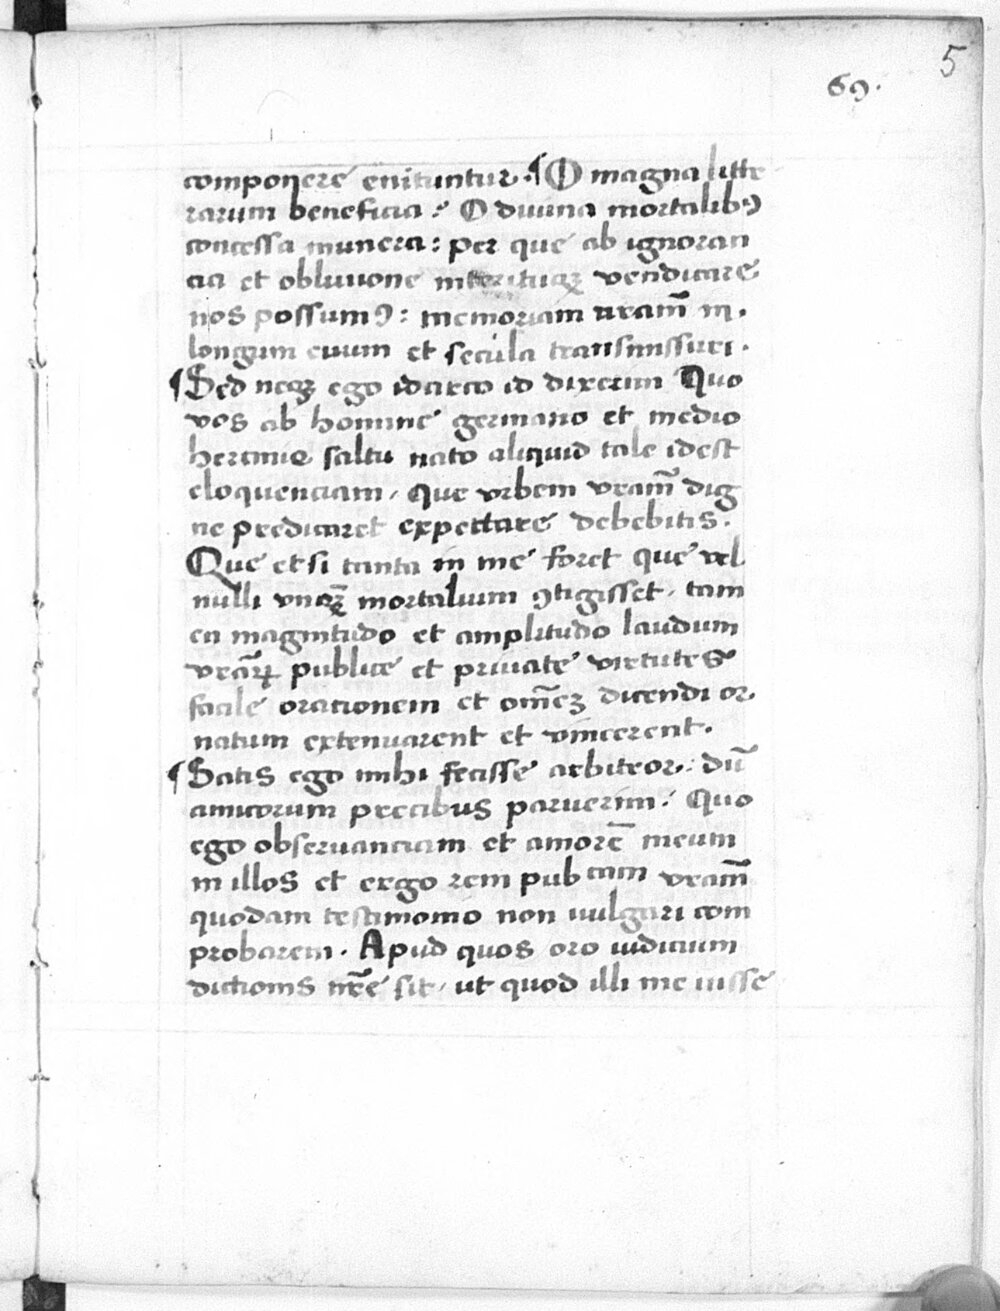 5
69.
componere enituntur. ¶ O magna litte
rarum beneficia: O diuina mortalibꝰ
concessa munera: per que ab ignoran
cia et obliuione interituqꝫ vendicare
nos possumꝰ: memoriam nr̄am in
longum euum et secula transmissuri.
¶ Sed neqꝫ ego idcirco id dixerim Quo
vos ab homine germano et medio
hercinie saltu nato aliquid tale idest
eloquenciam, Que vrbem vr̄am dig
ne predicaret expectare debebitis.
Que etsi tanta in me foret que vel
nulli vnqꝫ mortalium ꝯtigisset, tam
en magnitudo et amplitudo laudum
vr̄aꝝ publice et priuate virtutes
facile orationem et om̄eꝫ dicendi or
natum extenuarent et vincerent.
¶ Satis ego mihi fecisse arbitror: dū
amicorum precibus paruerim: Quo
ego obseruanciam et amorē meum
in illos et ergo rem pubcam vr̄am
quodam testimonio non uulgari com
probarem. Apud quos oro iudicium
dictionis nr̄e sit, ut quod illi me iusse